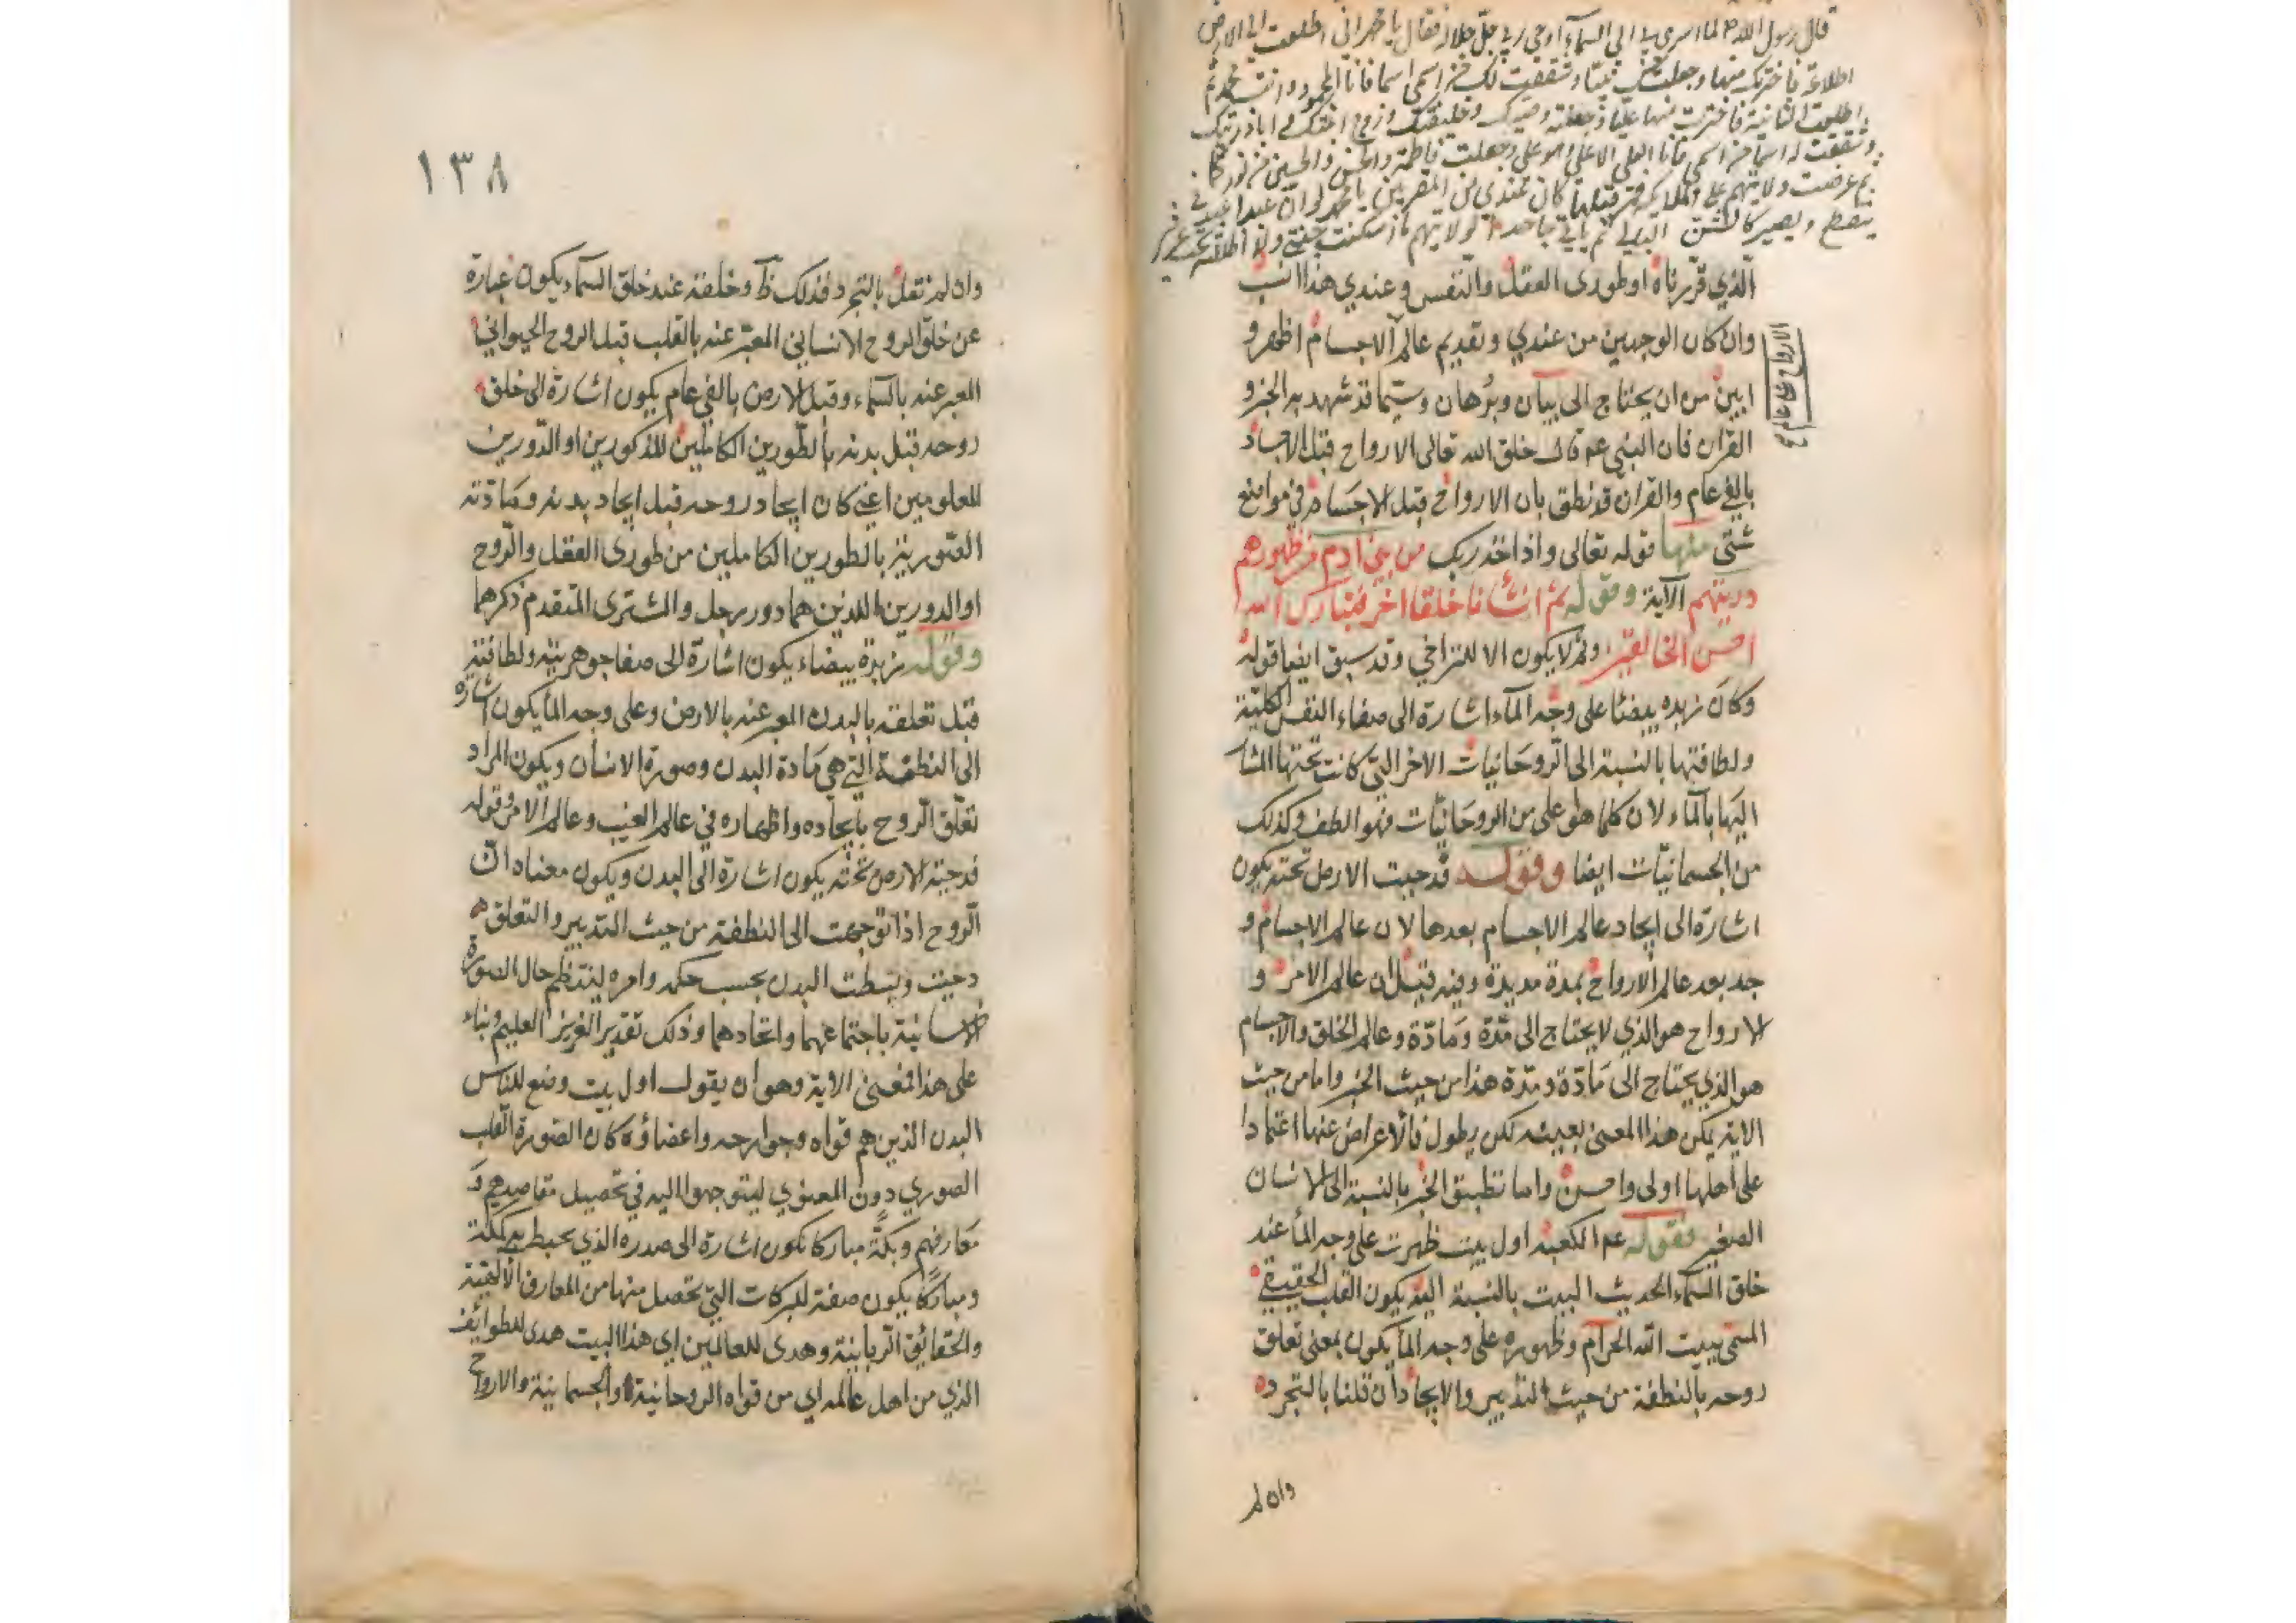 قال رسول الله لما اسرى بي الى السماء اوحى ربي جل جلاله فقال يا محمد اني اطلعت الى الارض
اطلاعة فاخترتك منها وجعلتك نبيا وشققت لك من اسمي اسما فانا المحمود وانت محمد ثم
اطلعت الثانية فاخترت منها عليا وجعلته وصيك وخليفتك وزوج ابنتك وابا ذريتك
وشققت له اسما من اسمي فانا العلي الاعلى وهو علي وجعلت فاطمة والحسن والحسين من نوركما
ثم عرضت ولايتهم على الملائكة فمن قبلها كان عندي من المقربين يا محمد لو ان عبدا عبدني
ينقطع ويصير كالشن البالي ثم ياتي جاحدا لولايتهم ما اسكنته جنتي ولا اظللته تحت عرشي
الذي قررناه او طورى العقل والنفس وعندي هذا انسب
وان كان الوجهين من عندي وتقديم عالم الاجسام اظهر و
ابين من ان يحتاج الى بيان وبرهان وسيما قد شهد به الخبر و
القران فان النبي عم قال خلق الله تعالى الارواح قبل الاجساد
بالفي عام والقران قد نطق بان الارواح قبل الاجسام في مواضع
شتى منها قوله تعالى واذ اخذ ربك من بني ادم من ظهورهم
ذريتهم الآية وقوله ثم انشاناه خلقا اخر فتبارك الله
احسن الخالقين وثم لا يكون الا للتراخي وقد سبق ايضا قوله
وكان زبده بيضا على وجه الماء اشارة الى صفاء النفس الكلية
ولطافتها بالنسبة الى الروحانيات الاخر التي كانت تحتها المشار
اليها بالماء لان كلما هو اعلى من الروحانيات فهو الطف وكذلك
من الجسمانيات ايضا وقوله فدحيت الارض تحته يكون
اشارة الى ايجاد عالم الاجسام بعدها لان عالم الاجسام و
جد بعد عالم الارواح بمدة مديدة وفيه قيل ان عالم الامر و
الارواح هو الذي لا يحتاج الى مدة ومادة وعالم الخلق والاجسام
هو الذي يحتاج الى مادة ومدة هذا من حيث الخبر واما من حيث
الاية يمكن هذا المعنى بعينه لكن يطول فالاعراض عنها اعتمادا
على اهلها اولى واحسن واما تطبيق الخبر بالنسبة الى الانسان
الصغير فقوله عم الكعبة اول بيت ظهرت على وجه الماء عند
خلق السماء الحديث البيت بالنسبة اليه يكون القلب الحقيقي
المسمى ببيت الله الحرام وظهوره على وجه الماء يكون بمعنى تعلق
روحه بالنطفة من حيث التدبير والايجاد ان قلنا بالتجرد
وان لم
١٣٨
وان لم نقل بالتجرد فذلك ظ وخلقته عند خلق السماء يكون عبارة
عن خلق الروح الانساني المعبر عنه بالقلب قبل الروح الحيواني
المعبر عنه بالسماء وقبل الارض بالفي عام يكون اشارة الى خلق
روحه قبل بدنه بالطورين الكاملين المذكورين او الدورين
المعلومين اعني كان ايجاد روحه قبل ايجاد بدنه ومادته
الصورية بالطورين الكاملين من طورى العقل والروح
او الدورين اللذين هما دور زحل والمشترى المتقدم ذكرهما
وقوله زبدة بيضاء يكون اشارة الى صفا جوهريته ولطافته
قبل تعلقه بالبدن المعبر عنه بالارض وعلى وجه الماء يكون اشارة
الى النطفة التي هي مادة البدن وصورة الانسان ويكون المراد
تعلق الروح بايجاده واظهاره في عالم الغيب وعالم الامر وقوله
فدحيت الارض تحته يكون اشارة الى البدن ويكون معناه ان
الروح اذا توجهت الى النطفة من حيث التدبير والتعلق
دحيت وبسطت البدن بحسب حكمه وامره لينتظم حال الصورة
الانسانية باجتماعهما واتحادهما وذلك تقدير العزيز العليم وبناء
على هذا فمعنى الاية وهو ان يقول اول بيت وضع للناس
البدن الذين هم قواه وجوارحه واعضاؤه كان الصورة القلب
الصوري دون المعنوي ليتوجهوا اليه في تحصيل مقاصدهم و
معارفهم وبكة مباركا تكون اشارة الى صدره الذي يحيط به كمكة
ومباركا يكون صفة للبركات التي تحصل منها من المعارف الالهية
والحقائق الربانية وهدى للعالمين اي هذا البيت هدى للطوائف
الذي من اهل عالمه اي من قواه الروحانية والجسمانية والارواح